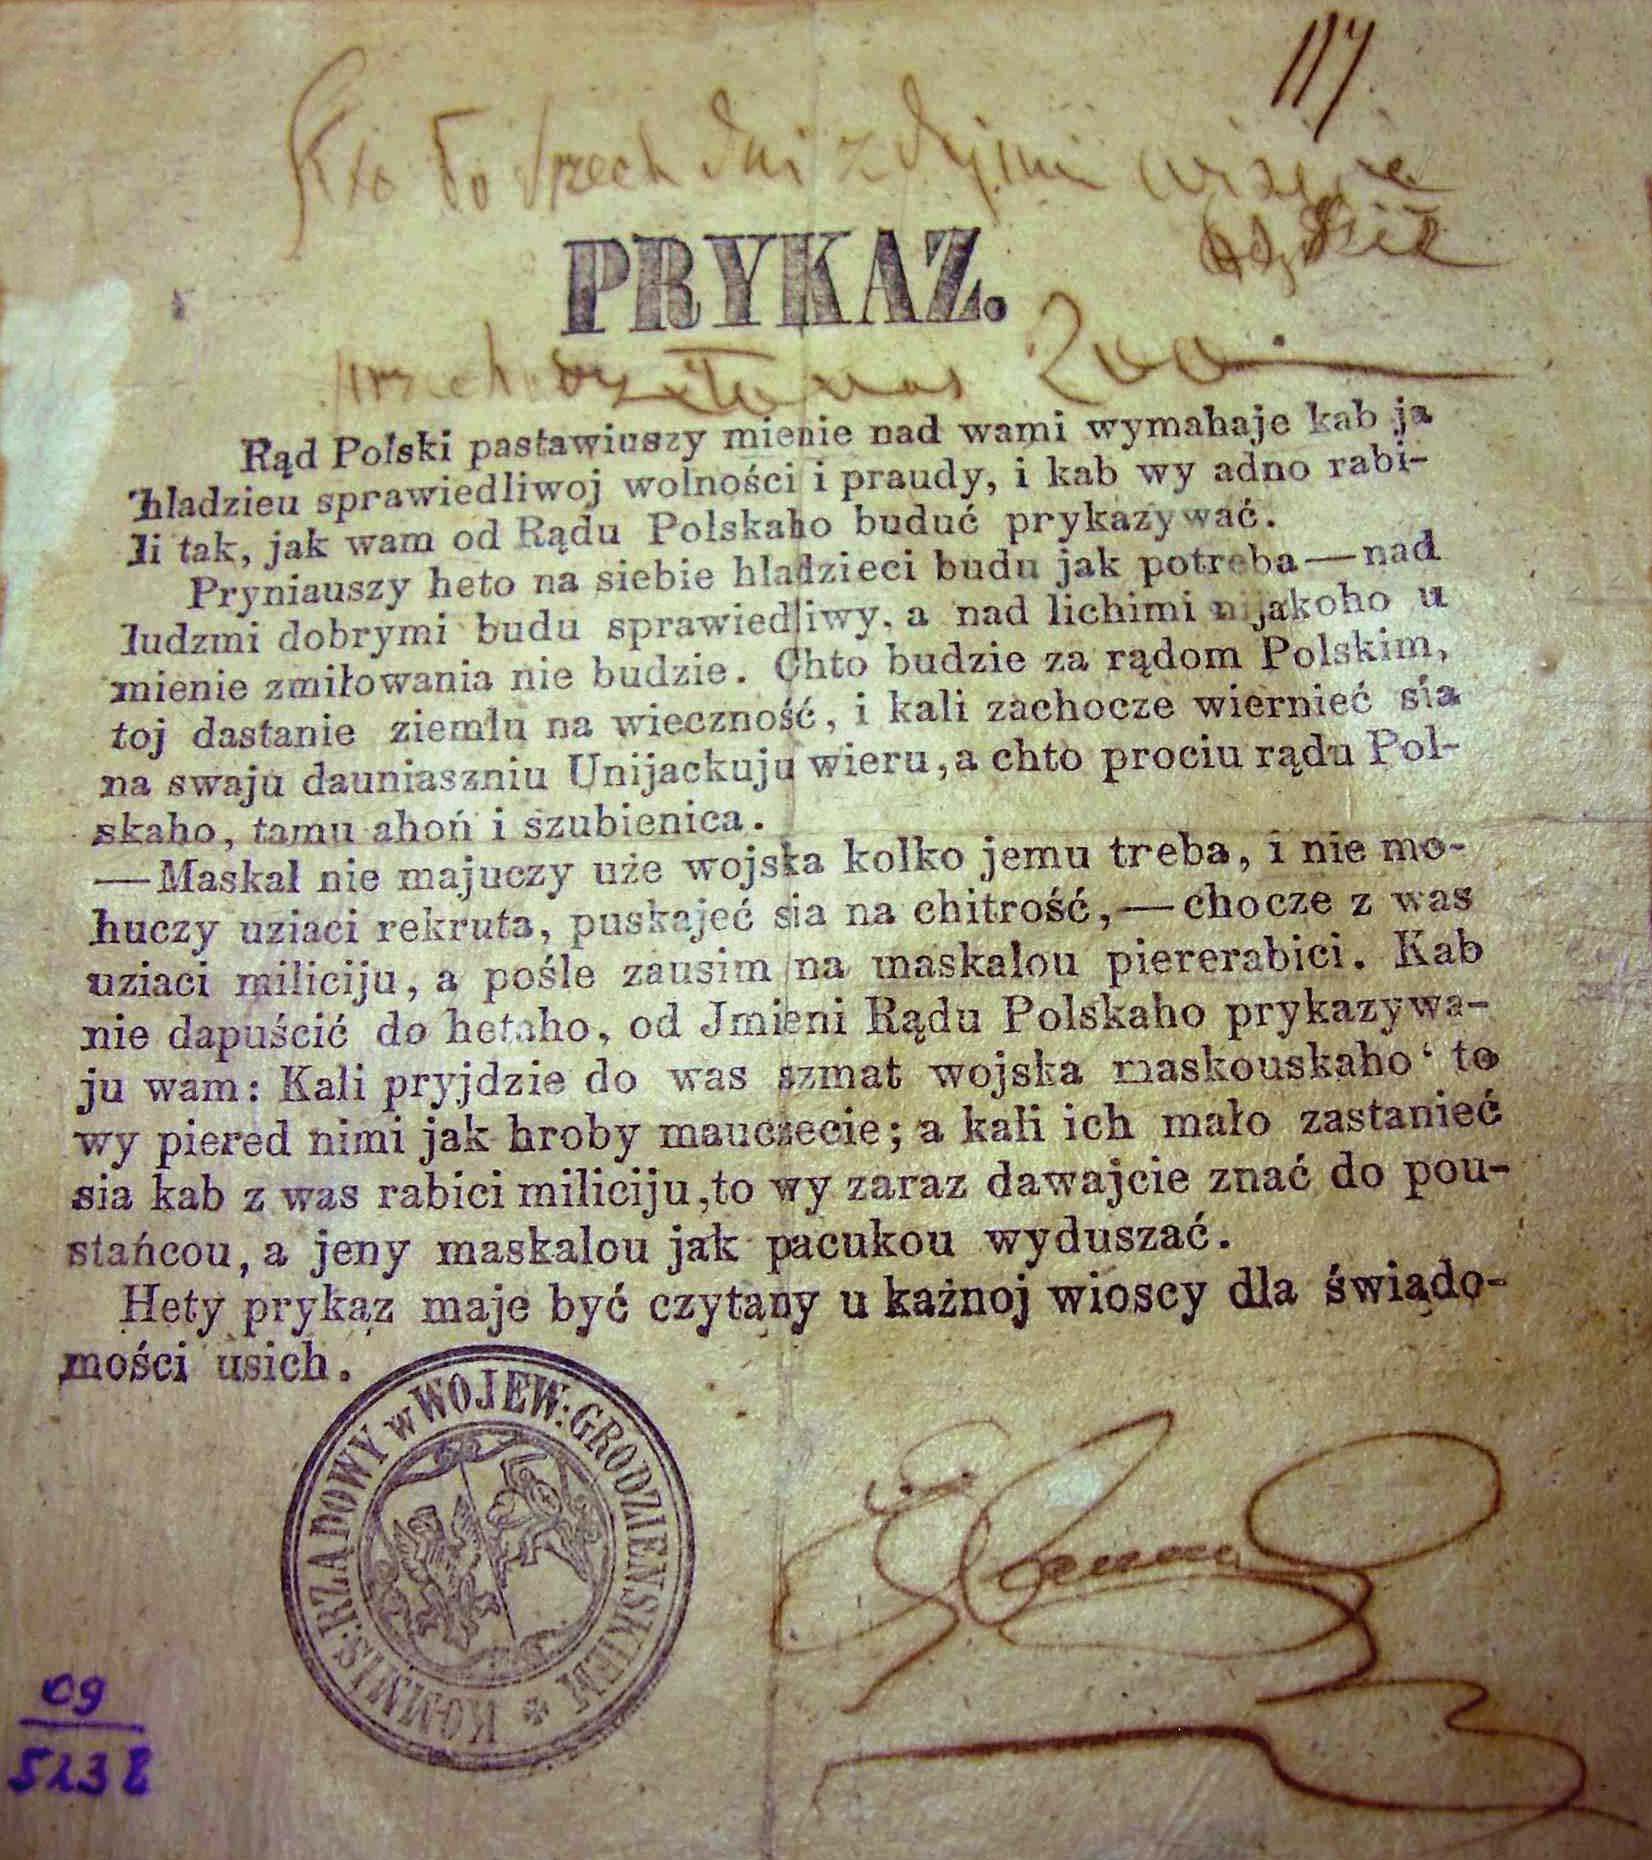 117
PRYKAZ.
Rąd Polski pastawiuszy mienie nad wami wymahaje kab ja
hladzieu sprawiedliwoj wolności i praudy, i kab wy adno rabi-
li tak, jak wam od Rądu Polskaho buduć prykazywać.
Pryniauszy heto na siebie hladzieci budu jak potreba—nad
ludzmi dobrymi budu sprawiedliwy, a nad lichimi nijakoho u
mienie zmiłowania nie budzie. Chto budzie za rądom Polskim,
toj dastanie ziemlu na wieczność, i kali zachocze wiernieć sia
na swaju dauniaszniu Unijackuju wieru, a chto prociu rądu Pol-
skaho, tamu ahoń i szubienica.
—Maskal nie majuczy uże wojska kolko jemu treba, i nie mo-
huczy uziaci rekruta, puskajeć sia na chitrość,—chocze z was
uziaci miliciju, a pośle zausim na maskalou piererabici. Kab
nie dapuścić do hetaho, od Jmieni Rądu Polskaho prykazywa-
ju wam: Kali pryjdzie do was szmat wojska maskouskaho‘ to
wy piered nimi jak hroby mauczecie; a kali ich mało zastanieć
sia kab z was rabici miliciju, to wy zaraz dawajcie znać do pou-
stańcou, a jeny maskalou jak pacukou wyduszać.
Hety prykąz maje być czytąny u kaźnoj wioscy dla świądo-
mości usich.
KOMMIS: RZĄDOWY w WOJEW: GRODZIENSKIEM
09
5138